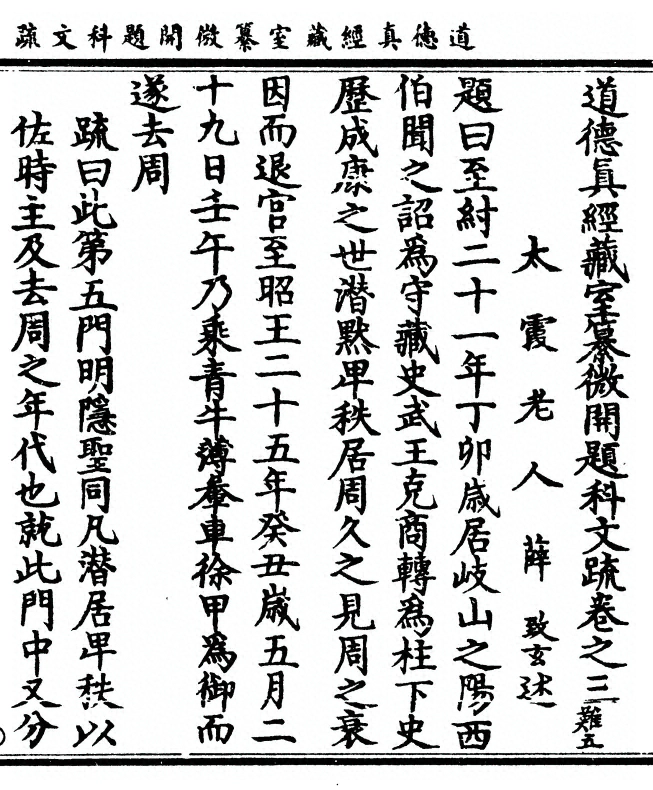 道德真經藏室纂微開題科文疏
道德眞經藏室纂微開題科文疏卷之三 難五
太霞老人薛致玄述
題曰至紂二十一年丁卯歲居岐山之陽西
伯聞之詔爲守藏史武王克商轉爲柱下史
歷成康之世潛默卑秩居周久之見周之衰
因而退官至昭王二十五年癸丑歲五月二
十九日壬午乃乘青牛薄軬車徐甲爲御而
遂去周
疏曰此第五門明隱聖同凡潛居卑秩以
佐時主及去周之年代也就此門中又分